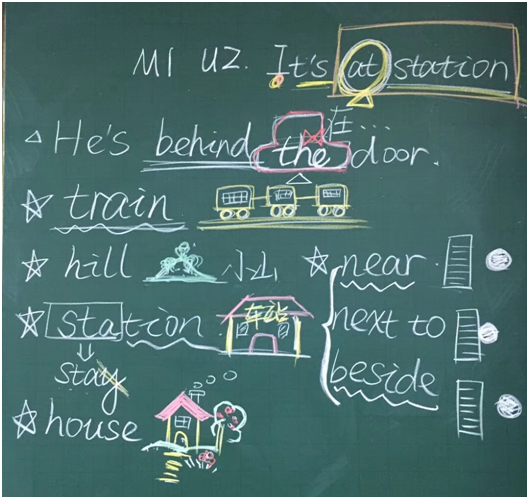 M1 U2. It's at station
在...
△ He's behind the door.
☆ train
☆ hill 小山
☆ near.
☆ station 车站
next to
stay
beside
☆ house